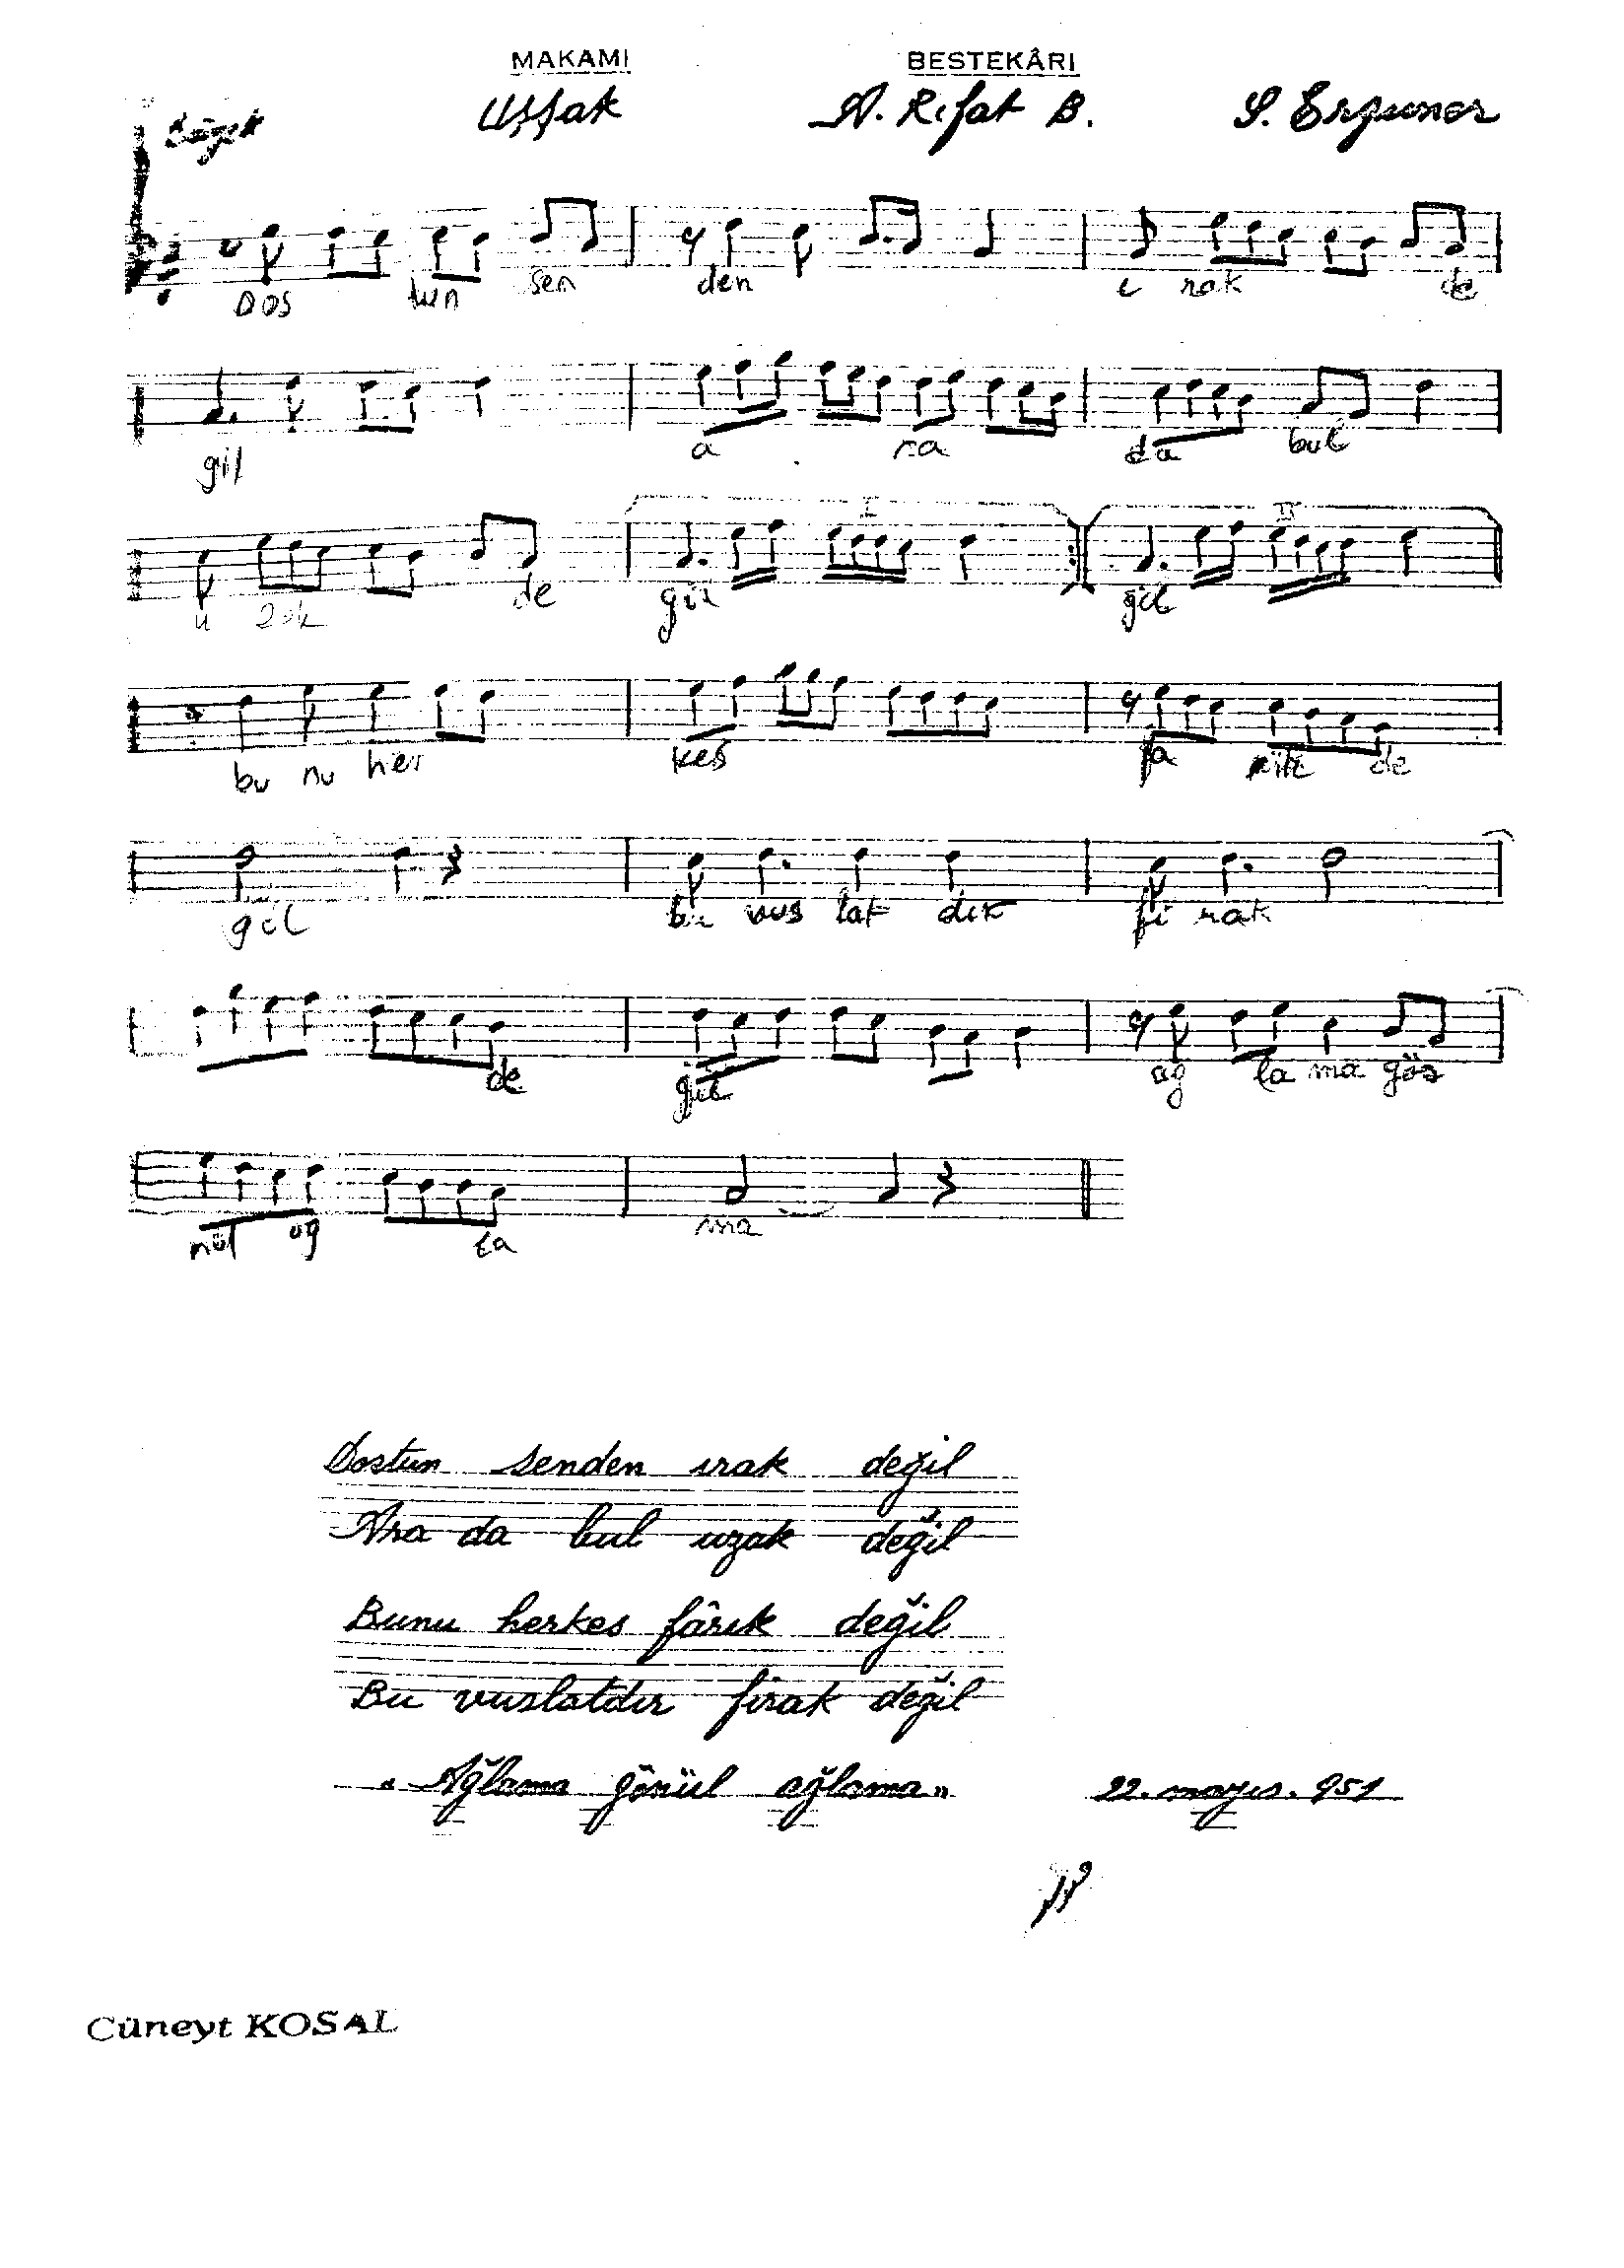 MAKAMI BESTEKÂRI
Uşşak A. Rıfat B. S. Erguner
Dos tun sen den ı rak de
gil a ra da bul
u zak de gil gil
bu nu her kes fa rık de
gil bu vus lat dır fi rak
de gil ağ la ma gön
nül ağ la ma
Dostun senden ırak değil
Ara da bul uzak değil
Bunu herkes fârık değil
Bu vuslatdır firak değil
"Ağlama gönül ağlama" 22. mayıs. 951
Cüneyt KOSAL